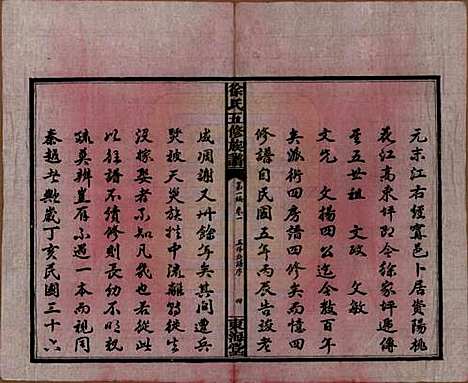 元宋江右經寳邑卜居賁陽桃
花江高東坪即今徐家坪遞傳
至五世祖　文政　文敏
文先　文揚四公迄今數百年
矣派衍四房譜四修矣而憶四
修譜自民國五年丙辰告竣
徐氏五修族譜
東海堂
咸凋謝又卅餘年矣其間遭兵
燹被天災族推中流離轉徙生
没嫁娶者不可殫凡矣若從此
以往譜不續修則長幼不明親
疏莫辨豈有不過一本而視同
秦越哉歲丁亥民國三十六